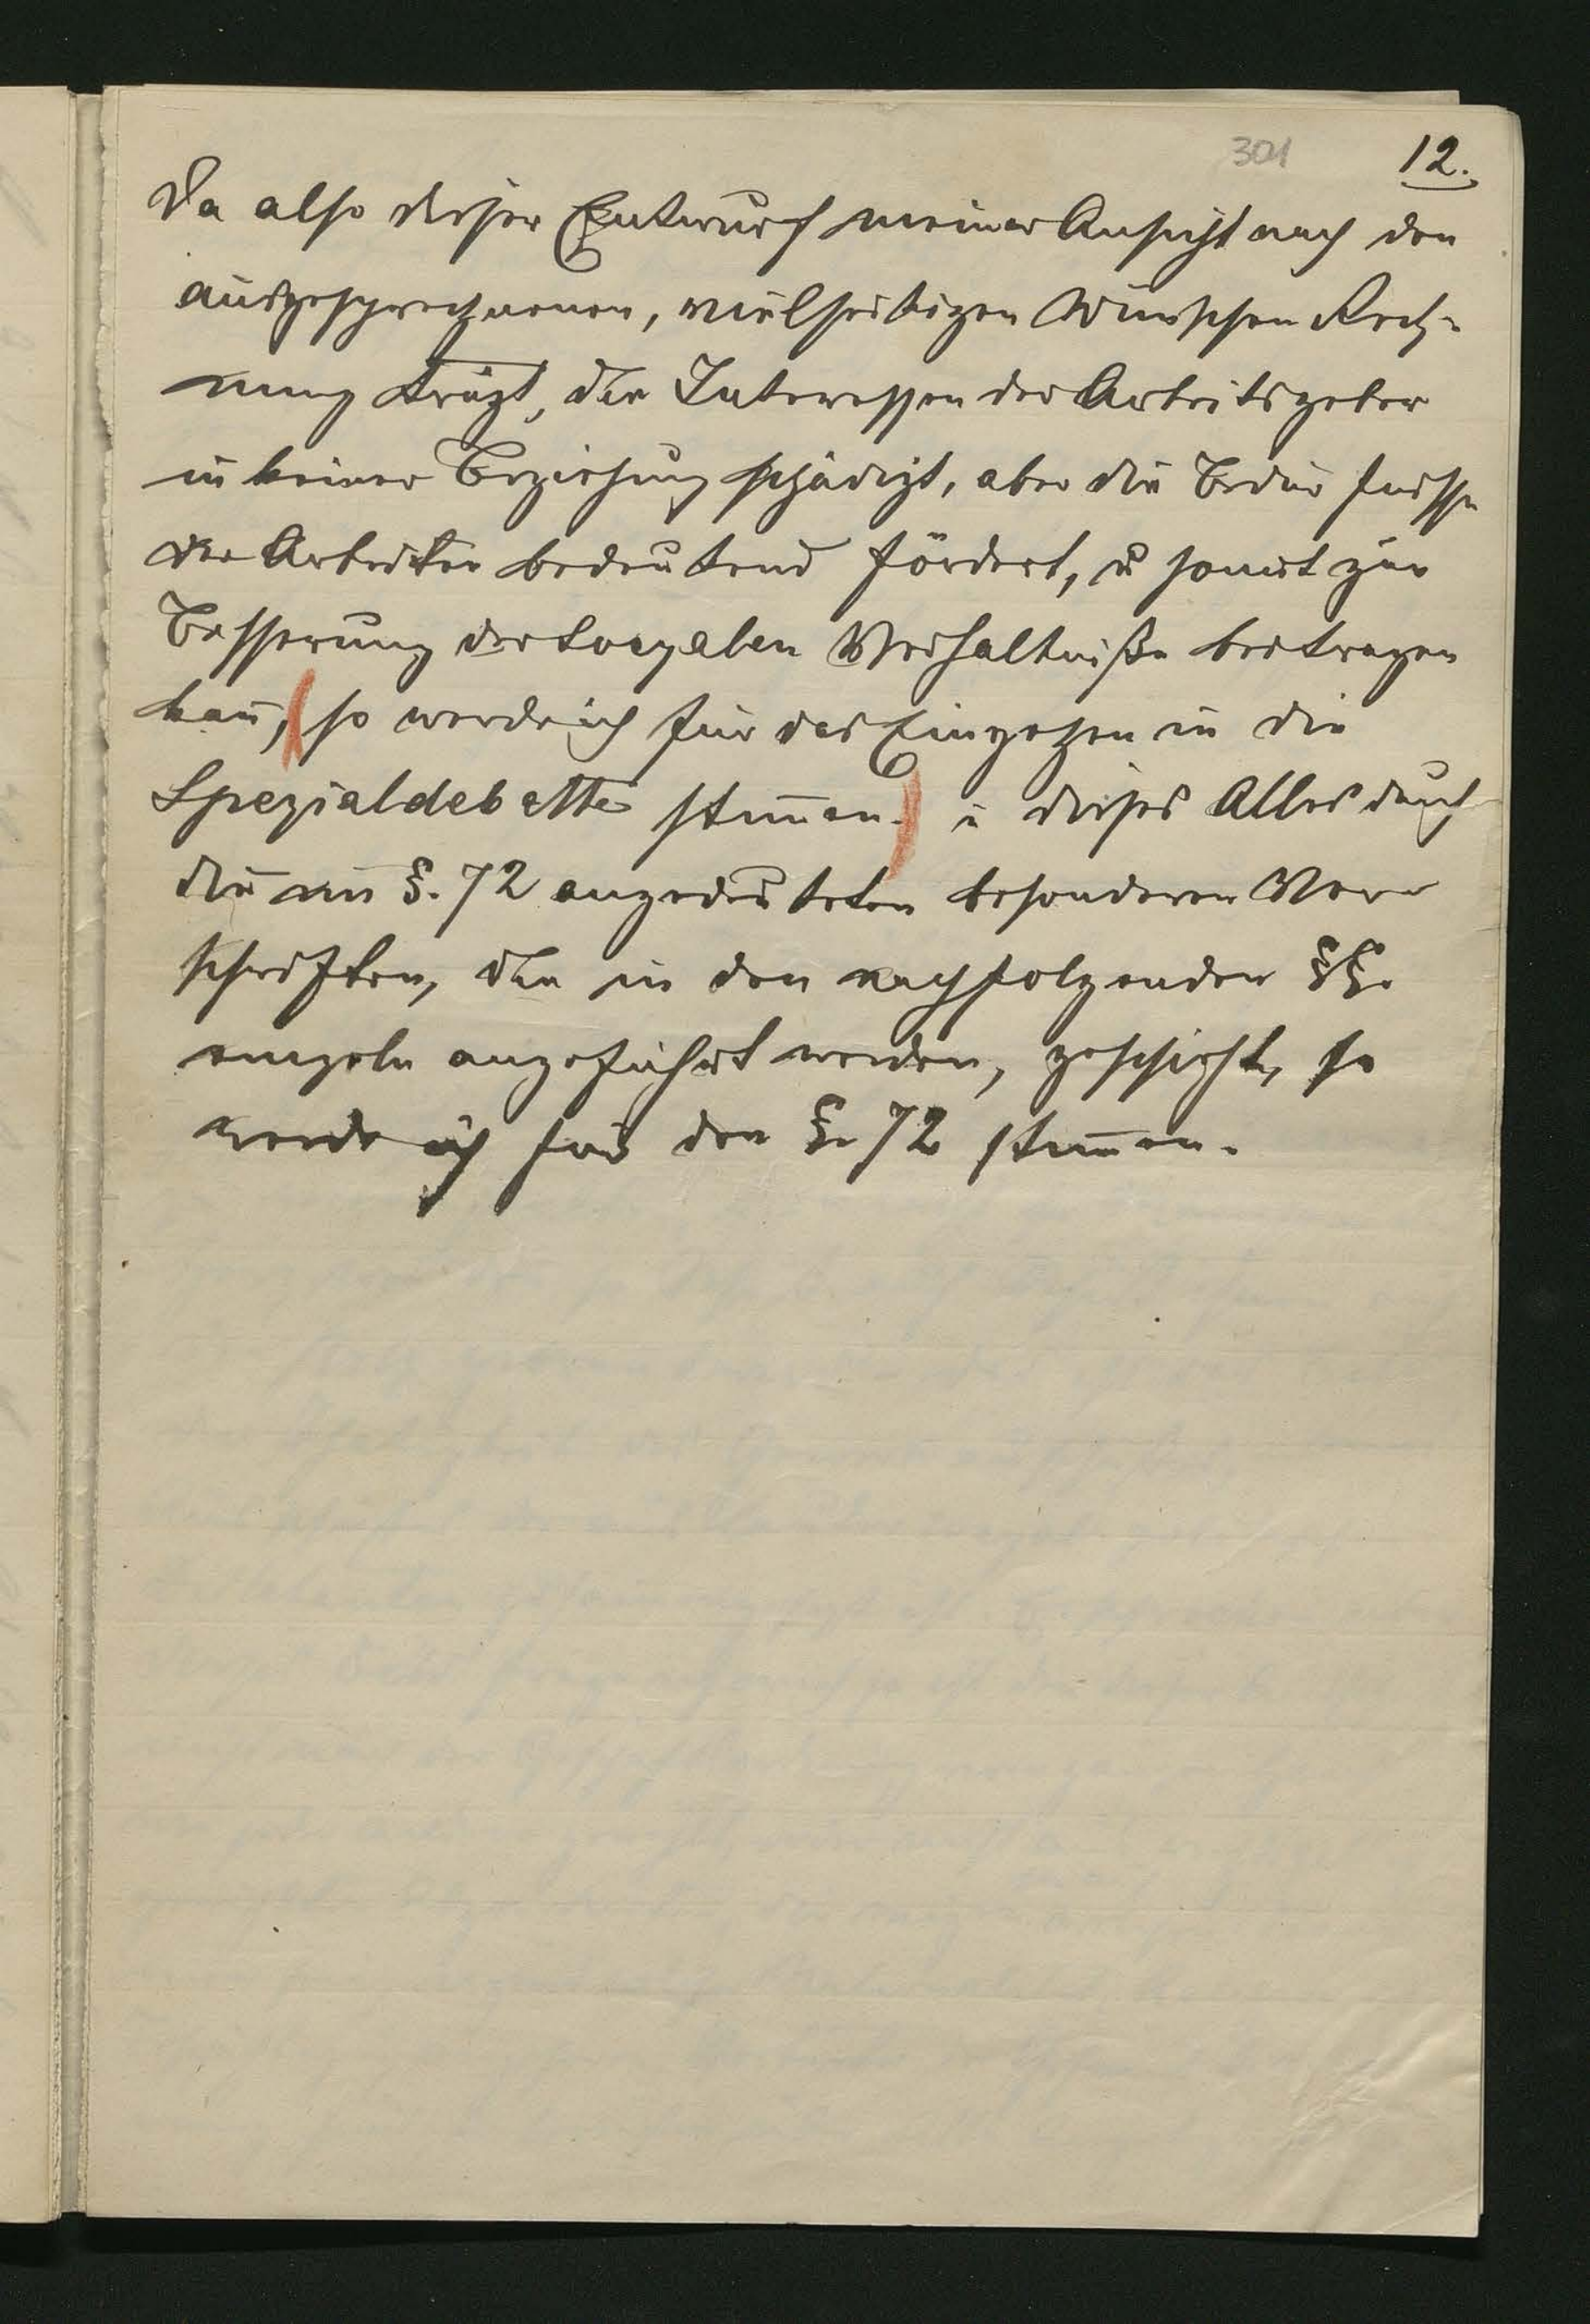 301 12.
Da also dieser Entwurf meiner Ansicht nach den
ausgesprochenen, vielseitigen Wünschen Rech-
nung trägt, die Interessen der Arbeitsgeber
in keiner Beziehung schädigt, aber die Bedürfnisse
der Arbeiter bedeutend fördert, u somit zur
Besserung der sozyalen Verhältniße beitragen
kan̄, (so werde ich für das Eingehen in die
Spezialdebatte stim̄en.) u dieses Alles durch
die im §. 72 angedeuteten besonderen Vor-
schriften, die in den nachfolgenden §§.
einzeln angeführt werden, geschieht, so
werde ich für den §. 72 stim̄en.